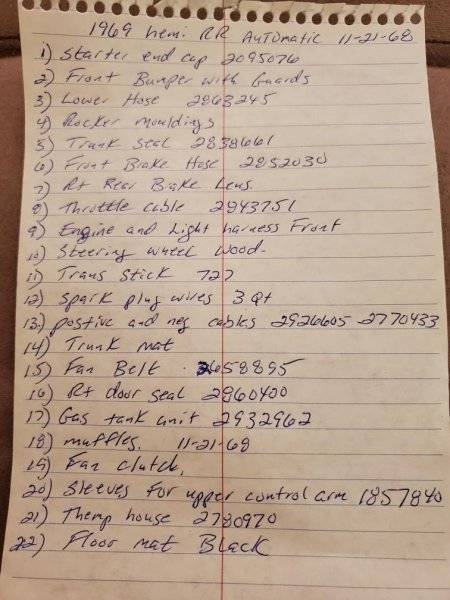 1969 Hemi RR Automatic 11-21-68
1) Starter end cap 2095076
2) Front Bumper with Guards
3) Lower Hose 2863245
4) Rocker mouldings
5) Trunk Seal 2838661
6) Front Brake Hose 2852030
7) Rt Rear Brake Lens.
8) Throttle cable 2843751
9) Engine and Light harness Front
10) Steering wheel Wood-
11) Trans Stick 727
12) Spark plug wires 3 Qt
13.) postive and neg cables 2926605-2770433
14) Trunk mat
15) Fan Belt 2658895
16) Rt door seal 2960400
17) Gas tank unit 2932962
18) muffles. 11-21-68
19) Fan clutch,
20) Sleeves for upper control arm 1857840
21) Themp house 2780970
22) Floor mat Black